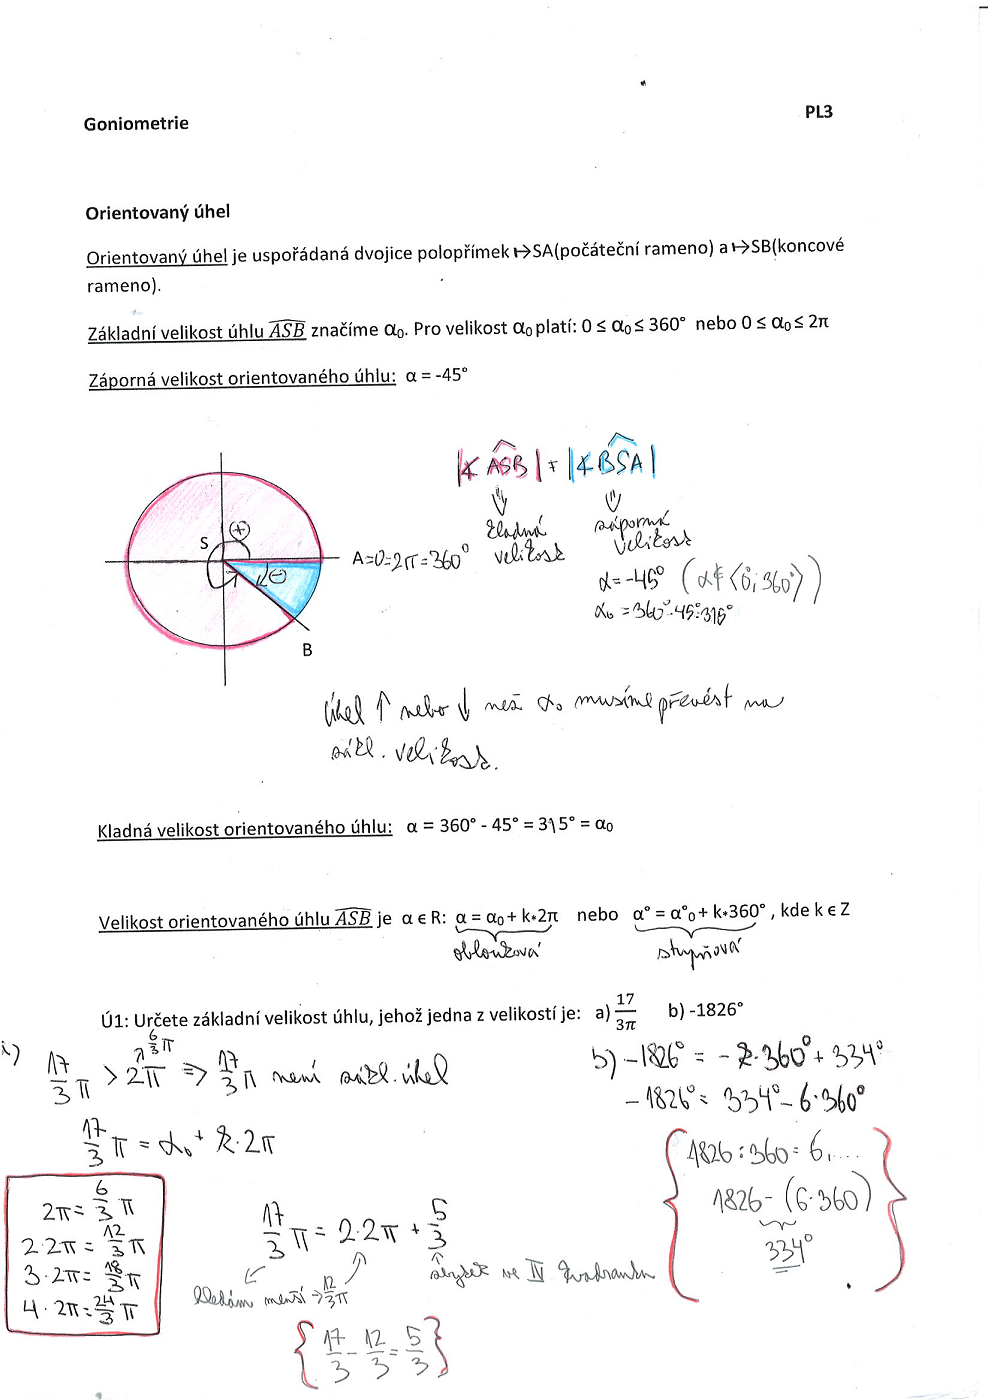 PL3
Goniometrie
Orientovaný úhel
Orientovaný úhel je uspořádaná dvojice polopřímek ↦SA(počáteční rameno) a ↦SB(koncové
rameno).
Základní velikost úhlu ASB značíme α₀. Pro velikost α₀ platí: 0 ≤ α₀ ≤ 360° nebo 0 ≤ α₀ ≤ 2π
Záporná velikost orientovaného úhlu: α = -45°
|∢ ASB| + |∢ BSA|
kladná
velikost
záporná
velikost
S
+
−
A=0=2π=360°
B
α=-45° (α∉⟨0°; 360°⟩)
α₀ = 360°-45°=315°
úhel ↑ nebo ↓ než α₀ musíme převést na
zákl. velikost.
Kladná velikost orientovaného úhlu: α = 360° - 45° = 315° = α₀
Velikost orientovaného úhlu ASB je α ϵ R: α = α₀ + k*2π nebo α° = α°₀ + k*360° , kde k ϵ Z
oblouková
stupňová
Ú1: Určete základní velikost úhlu, jehož jedna z velikostí je: a) 17/3π b) -1826°
6/3 π
17/3 π > 2π => 17/3 π není zákl. úhel
17/3 π = α₀ + k·2π
2π = 6/3 π
2·2π = 12/3 π
3·2π = 18/3 π
4·2π = 24/3 π
17/3 π = 2·2π + 5/3
hledám menší → 12/3 π
zbytek ve IV kvadrantu
{17/3 - 12/3 = 5/3}
b) -1826° = -k·360° + 334°
-1826° = 334° - 6·360°
1826:360 = 6,....
1826 - (6·360)
334°